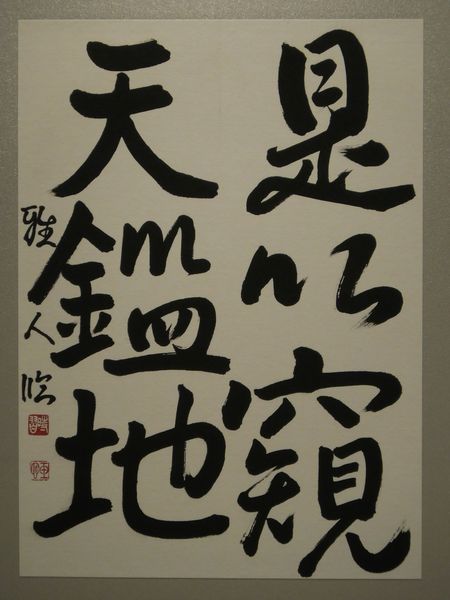 是以窺
天鑑地
雅人臨